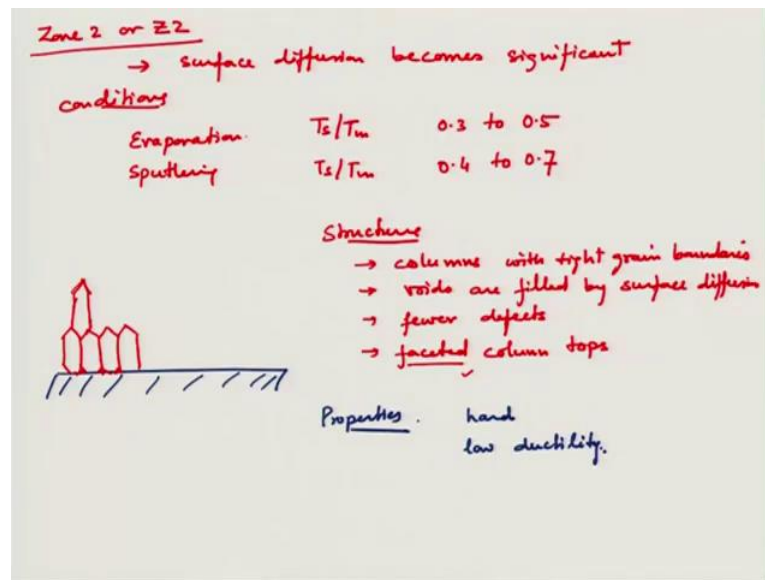 Zone 2 or Z2
→ surface diffusion becomes significant
conditions
Evaporation. Ts/Tm 0.3 to 0.5
Sputtering Ts/Tm 0.4 to 0.7
Structure
→ columns with tight grain boundaries
→ voids are filled by surface diffusion
→ fewer defects
→ faceted column tops
Properties. hard
low ductility.